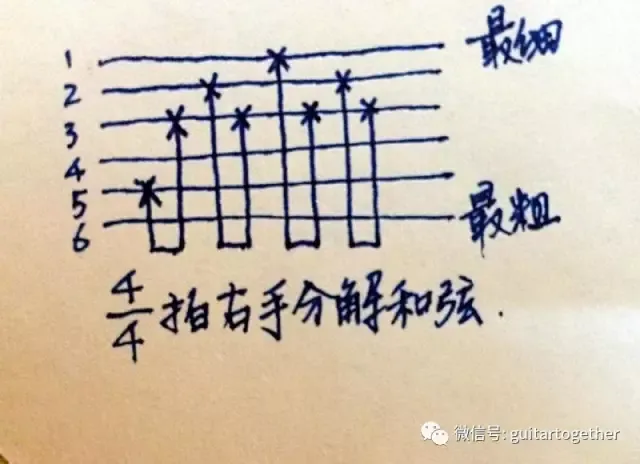 1
最细
2
3
4
5
最粗
6
4/4拍右手分解和弦.
微信号: guitartogether